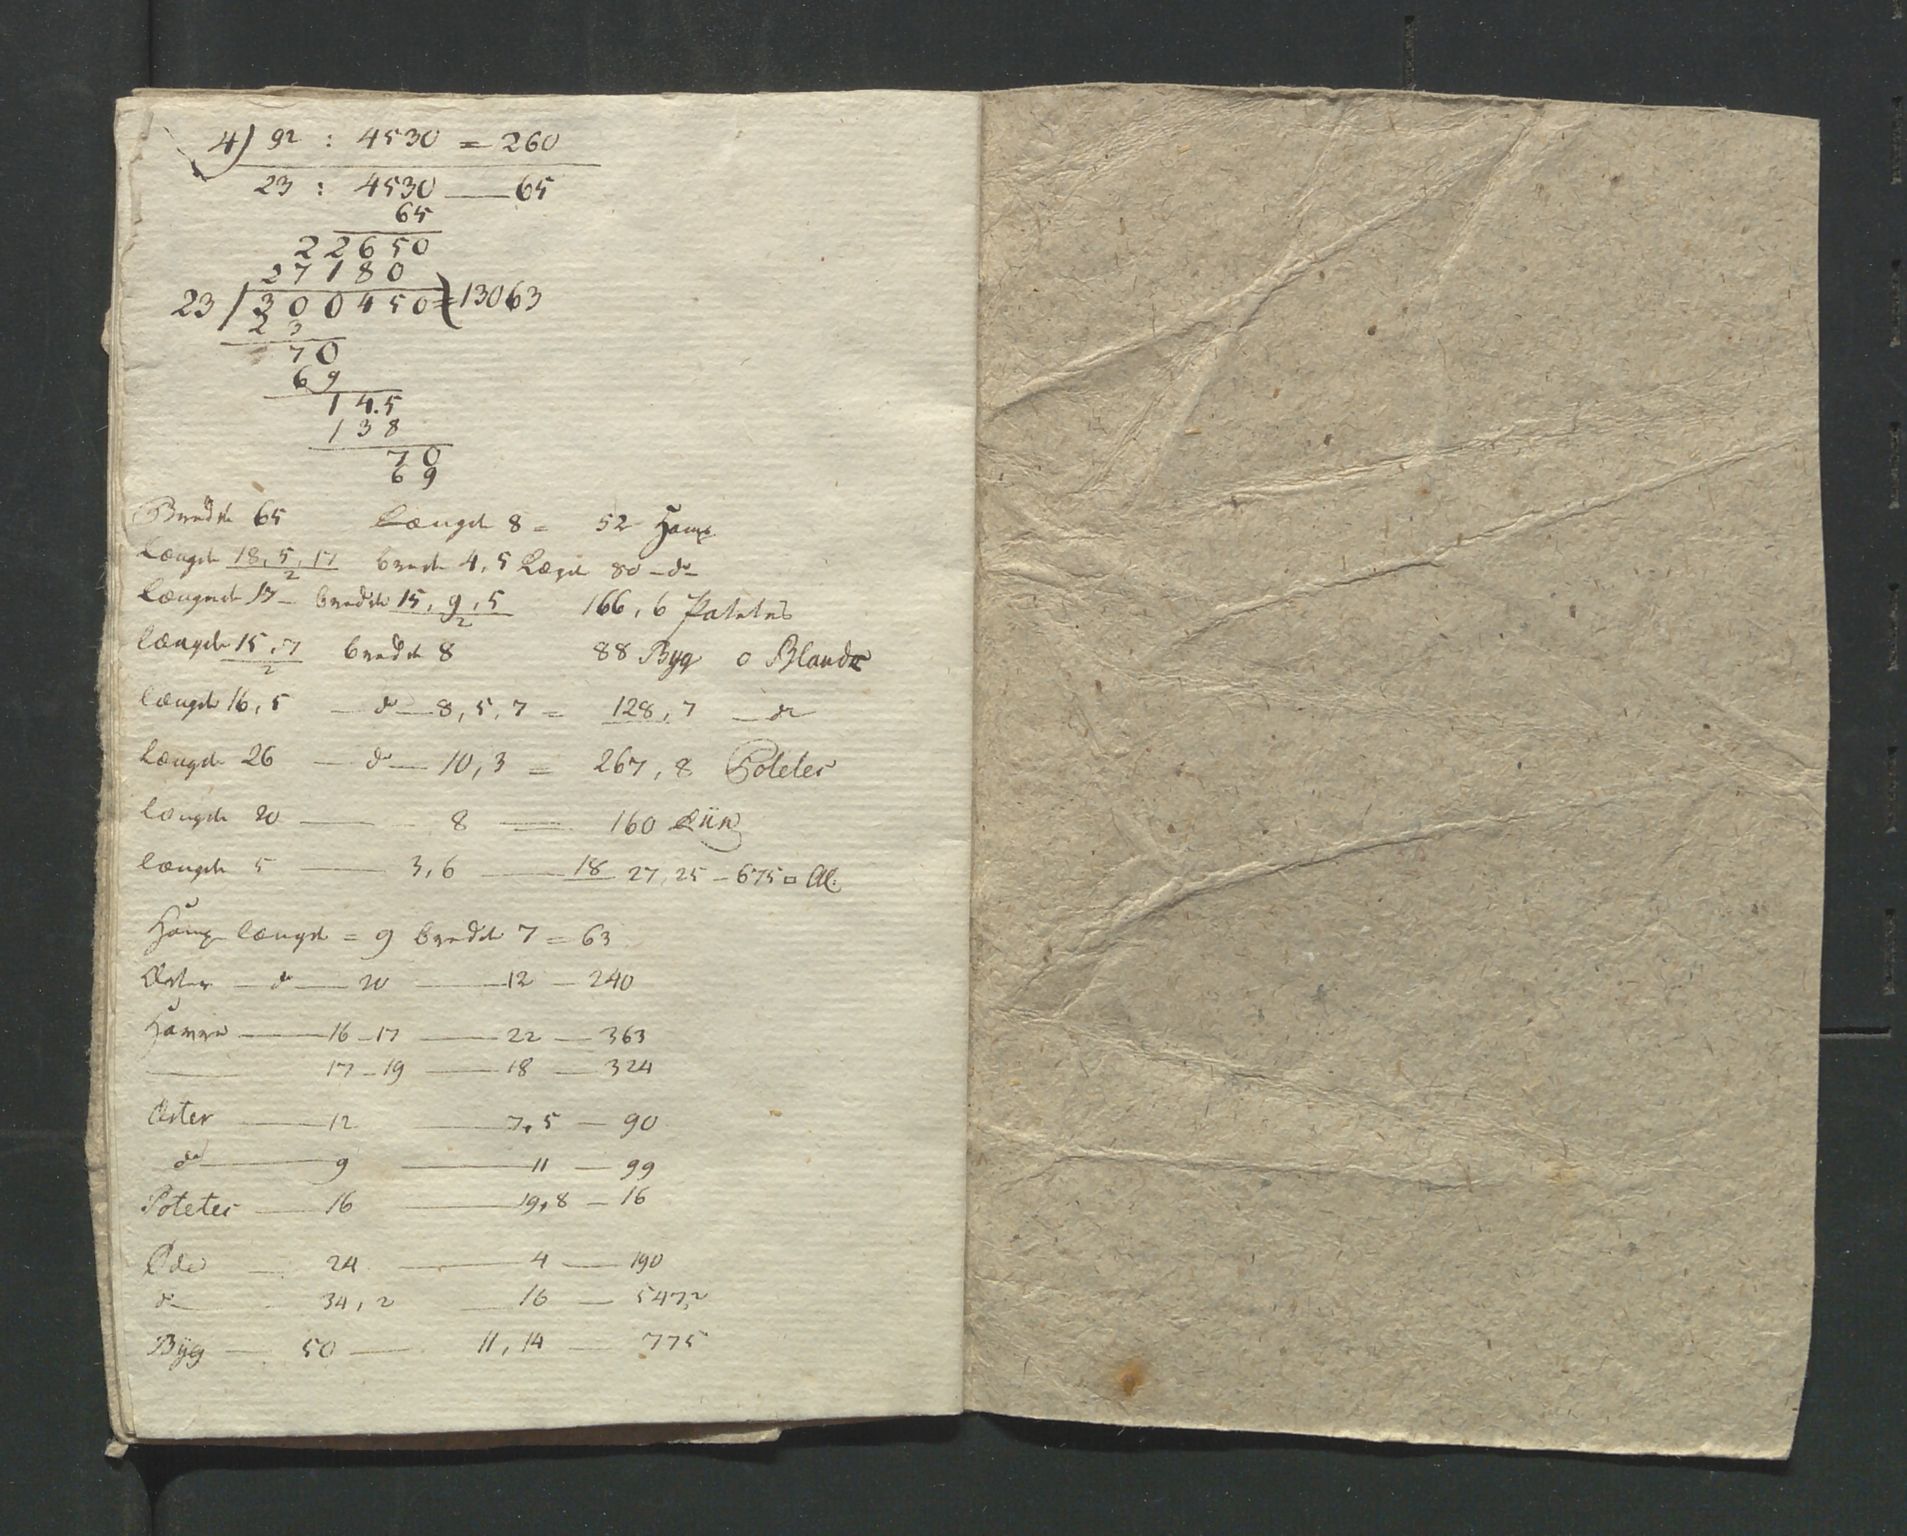 4) 92 : 4530 = 260
23 : 4530 — 65
65
22650
27180
23 / 300450 = 13063
23
70
69
14.5
138
70
69
Bredde 65 Længde 8 = 52 Hamp
Længde 18,5,17 brede 4,5 Lægde 80 — do —
2
Længde 17 — bredde 15, 9,5 166,6 Potetes
2
længde 15,7 bredde 8 88 Byg o Blande
2
længde 16,5 — do — 8,5,7 = 128,7 — do
Længde 26 — do — 10,3 = 267,8 Poteter
længde 20 — 8 — 160
længde 5 — 3,6 — 18 27,25 — 675 □ Al.
Hamp længde = 9 bredde 7 = 63
Erter — do — 20 — 12 — 240
Havre — 16 — 17 — 22 — 363
— 17 — 19 — 18 — 324
Erter — 12 — 7,5 — 90
do — 9 — 11 — 99
Poteter — 16 — 19,8 — 16
Øde — 24 — 4 — 190
do — 34,2 — 16 — 547,2
Byg — 50 — 11,14 — 775